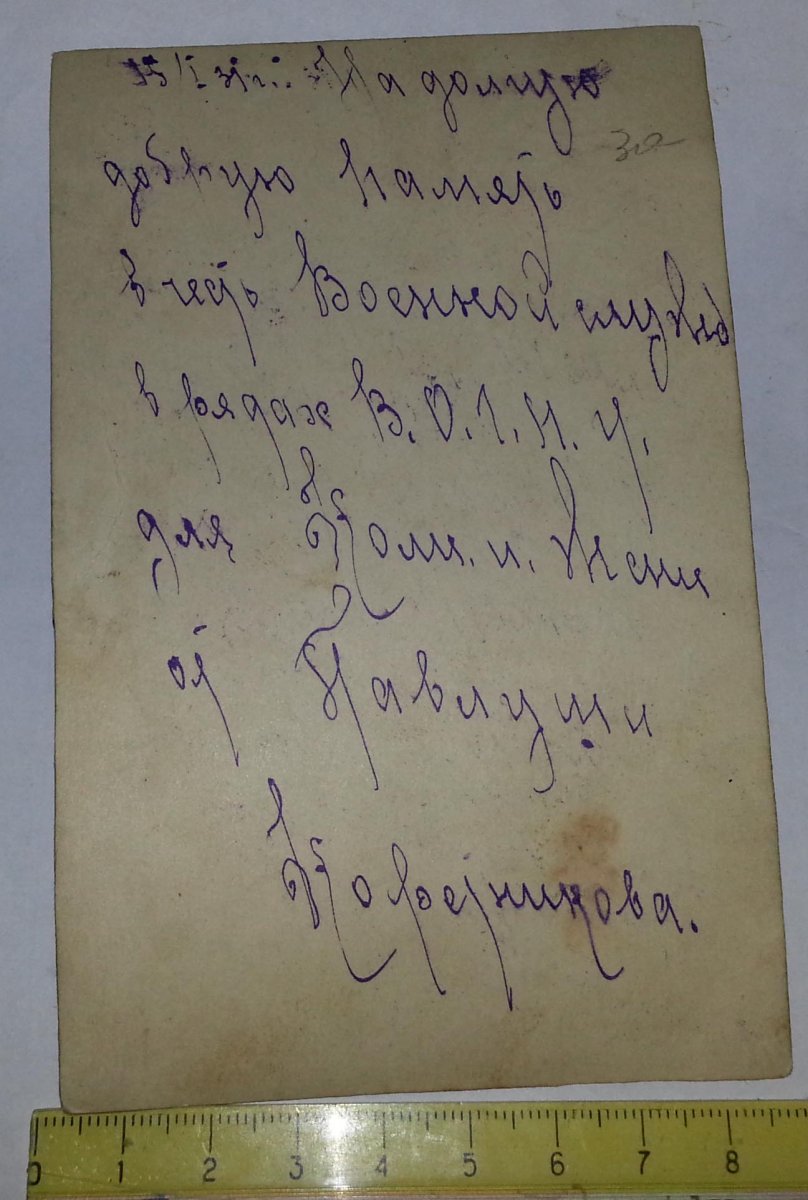 На долгую
добрую память 30
в честь Военной службы
в рядах В.О.
для Коли. и. Жени
от Павлуши
Коретникова.
0 1 2 3 4 5 6 7 8